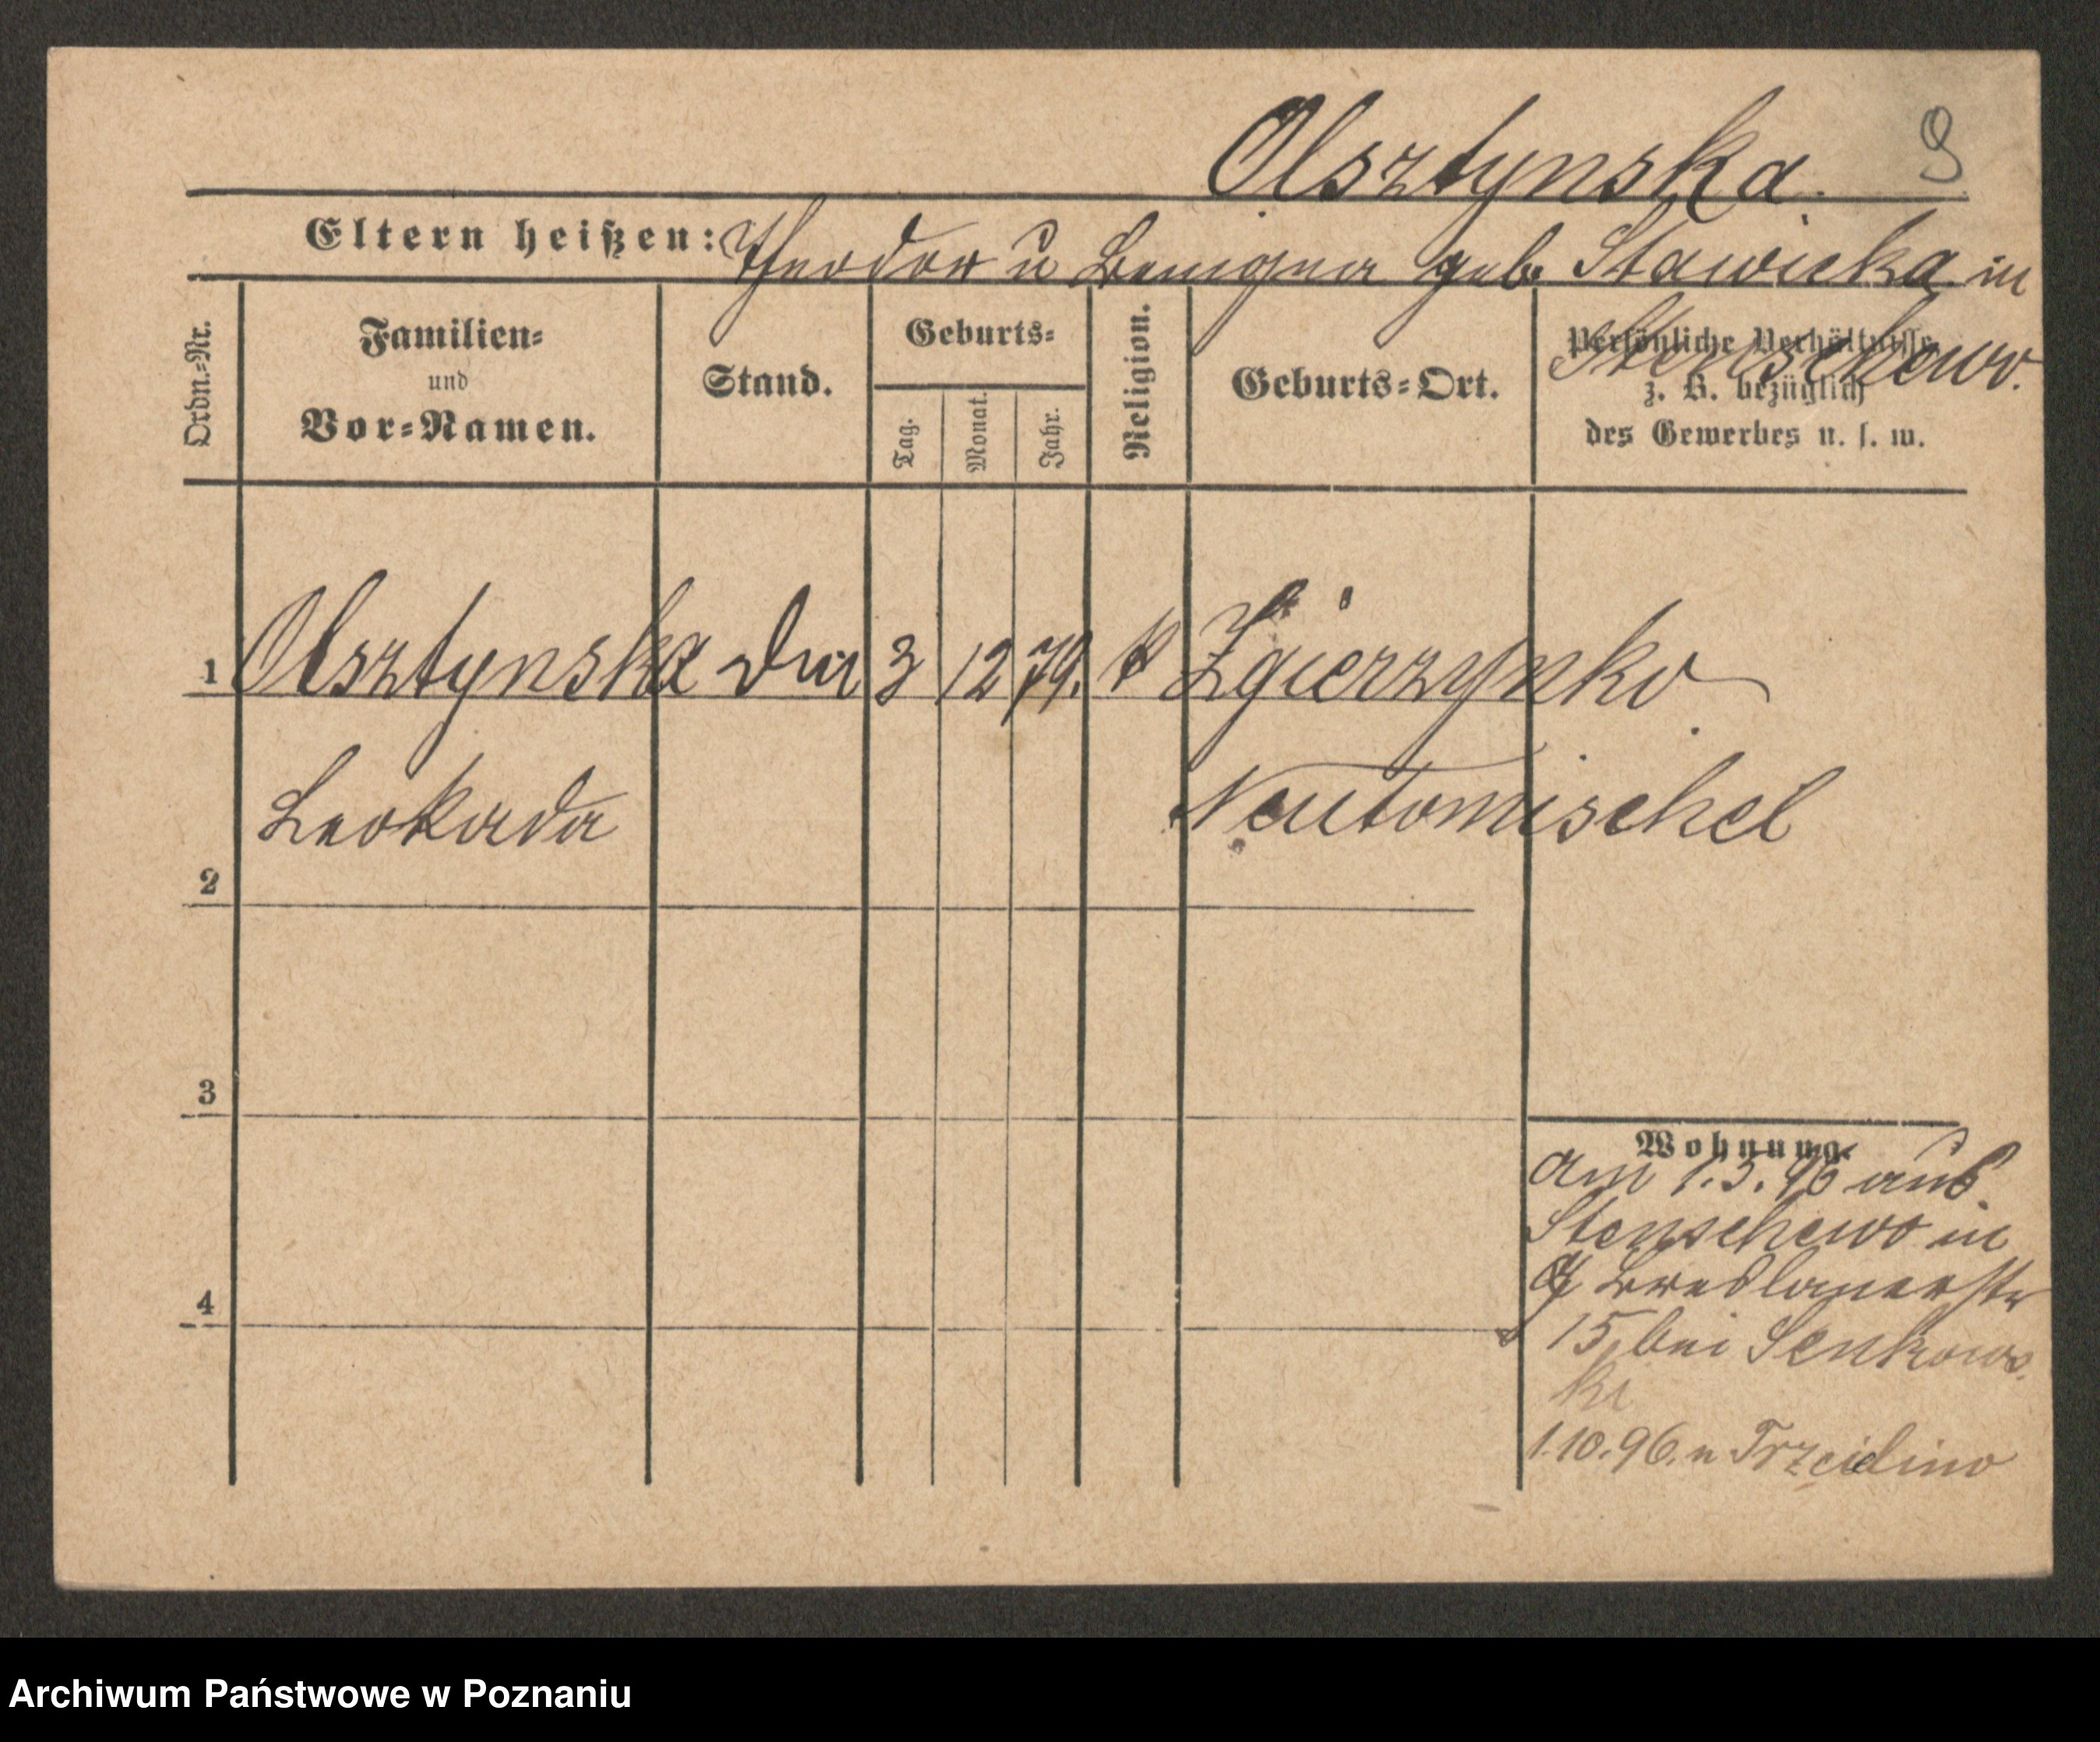 Olsztynska. 9
Eltern heißen: Theodor u Benigna geb. Stawicka in
Stenschewo.
Ordn.-Nr.
Familien-
und
Vor-Namen.
Stand.
Geburts-
Tag.
Monat.
Jahr.
Religion.
Geburts-Ort.
Persönliche Verhältnisse
z. B. bezüglich
des Gewerbes u. s. w.
1 Olsztynska 3 12 79. k Zgierzynko
Leokada Neutomischel
2
3
4
Wohnung.
am 1.3.96 aus
Stenschewo in
Breslauerstr
15, bei Senkows
ki
1.10.96. n Trzcielino
Archiwum Państwowe w Poznaniu